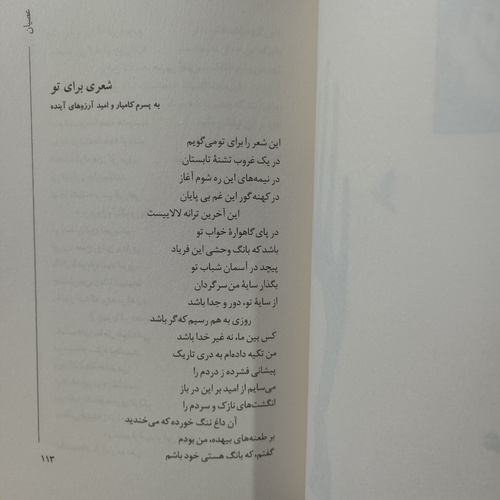 عصیان
شعری برای تو
به پسرم کامیار و امید آرزوهای آینده
این شعر را برای تو می‌گویم
در یک غروب تشنهٔ تابستان
در نیمه‌های این ره شوم آغاز
در کهنه گور این غم بی پایان
این آخرین ترانه لالاییست
در پای گاهوارهٔ خواب تو
باشد که بانگ وحشی این فریاد
پیچد در آسمان شباب تو
بگذار سایهٔ من سرگردان
از سایهٔ تو، دور و جدا باشد
روزی به هم رسیم که گر باشد
کس بین ما، نه غیر خدا باشد
من تکیه داده‌ام به دری تاریک
پیشانی فشرده ز دردم را
می‌سایم از امید بر این در باز
انگشت‌های نازک و سردم را
آن داغ ننگ خورده که می‌خندید
بر طعنه‌های بیهده، من بودم
گفتم، که بانگ هستی خود باشم
۱۱۳